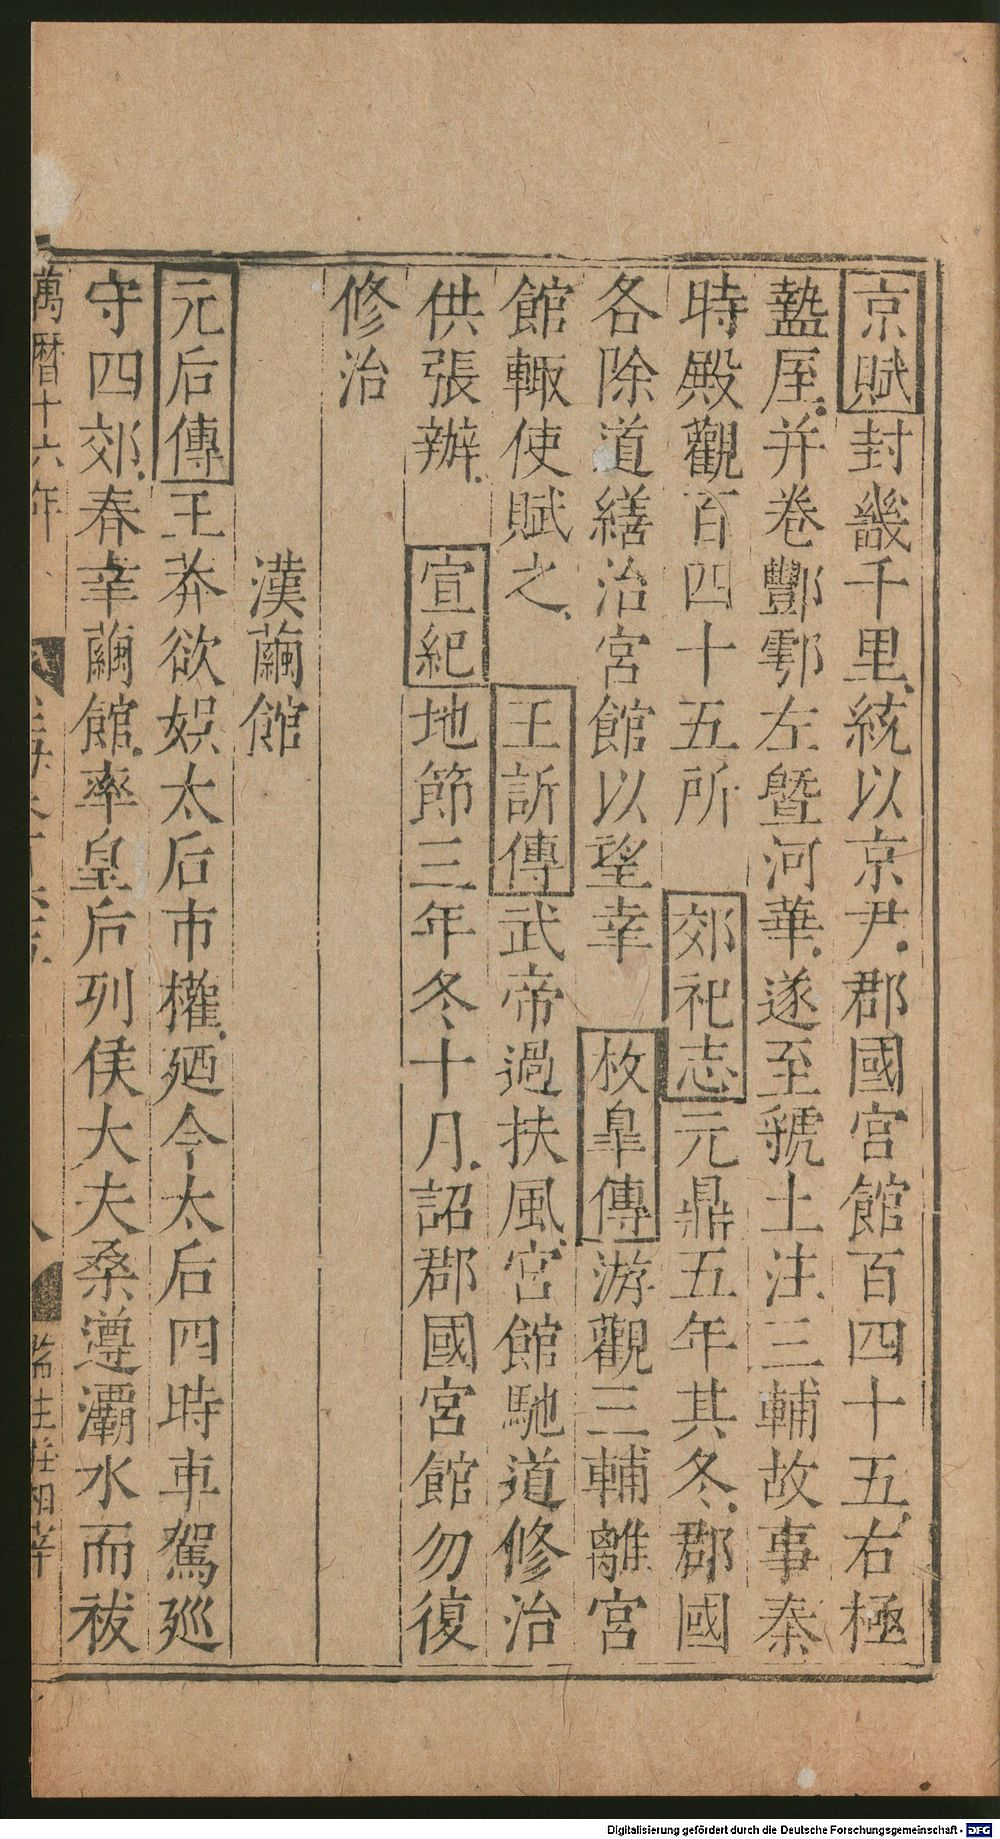 京賦封畿千里統以京尹郡國宮館百四十五右極
盩厔并卷酆鄠左曁河華遂至虢土注三輔故事秦
時殿觀百四十五所 郊祀志元鼎五年其冬郡國
各除道繕治宮館以望幸 枚臯傳游觀三輔離宮
館 輙使賦之 王訢傳武帝過扶風宮館馳道修治
供張辦 宣紀地節三年冬十月詔郡國宮館勿復
修治
漢繭館
元后傳王莽欲娯太后市權廼令太后四時車駕廵
守四郊春幸繭館率皇后列侯大夫桑遵灞水而祓
萬曆十六年
八
Digitalisierung gefördert durch die Deutsche Forschungsgemeinschaft - DFG